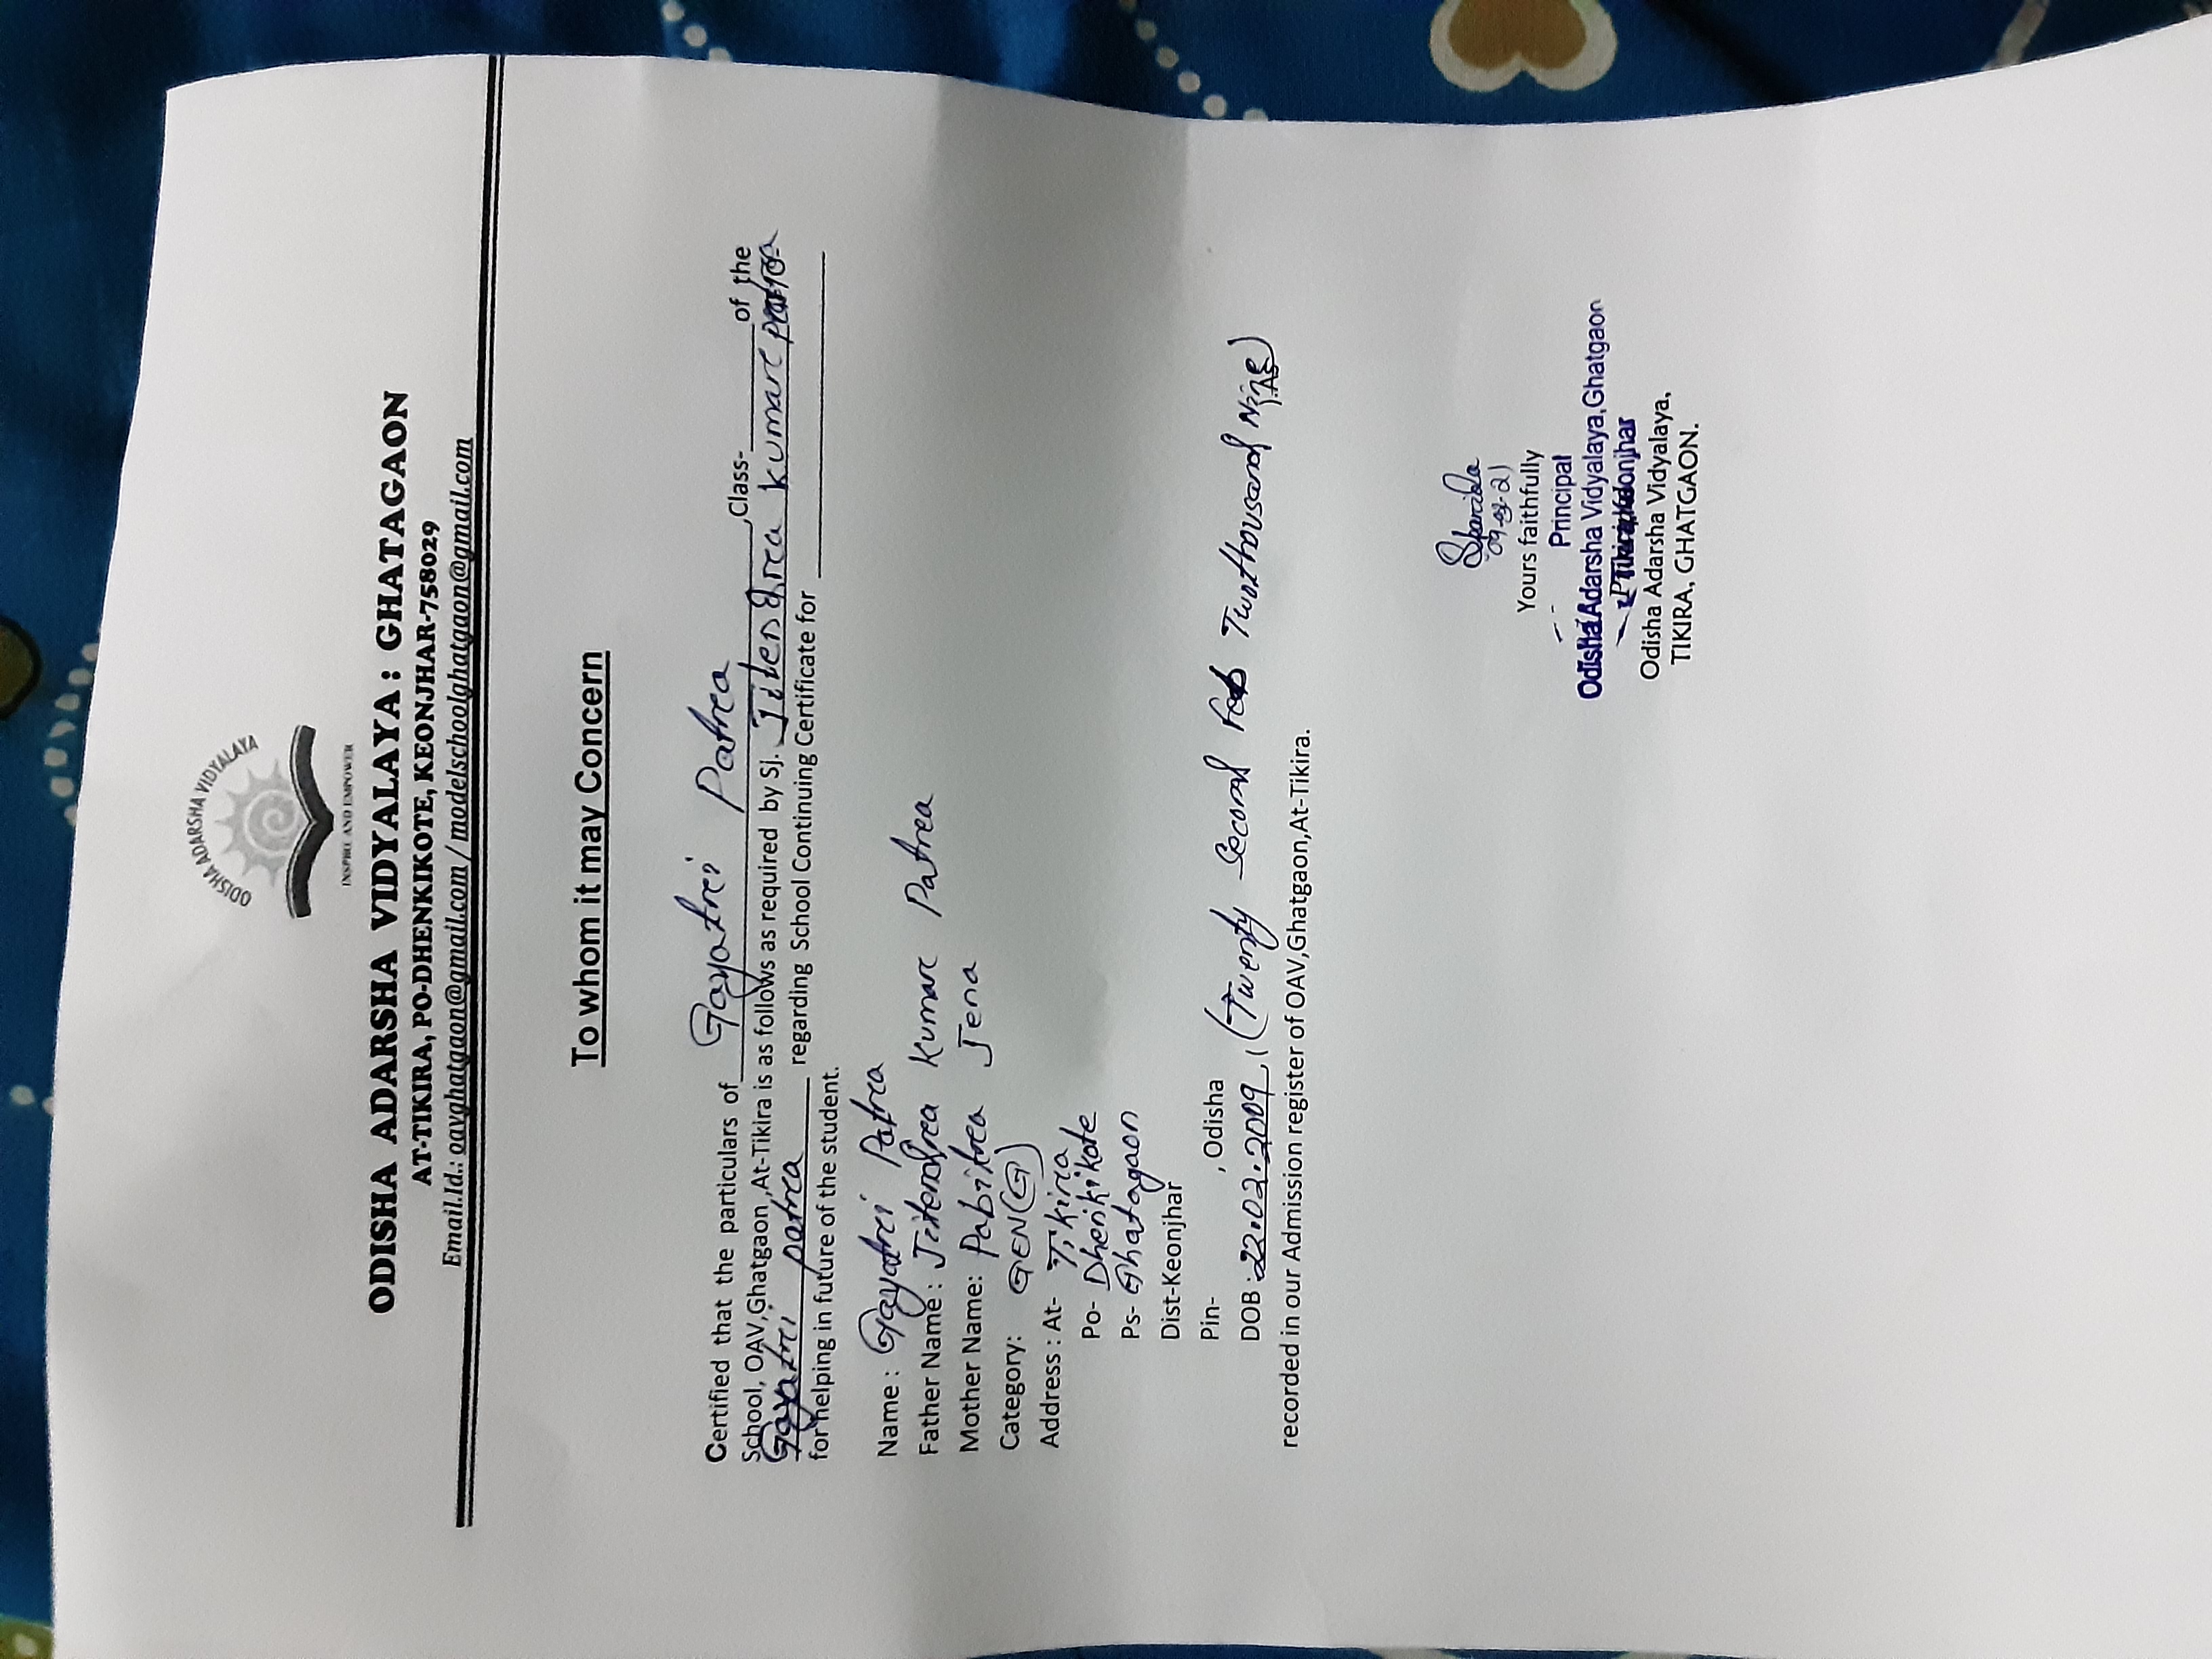 ODISHA ADARSHA VIDYALAYA
INSPIRE AND EMPOWER
ODISHA ADARSHA VIDYALAYA : GHATAGAON
AT-TIKIRA, PO-DHENKIKOTE, KEONJHAR-758029
Email.Id.: oavghatgaon@gmail.com / modelschoolghatgaon@gmail.com
To whom it may Concern
Certified that the particulars of Gayatrei Patrea ,Class- of the
School, OAV,Ghatgaon ,At-Tikira is as follows as required by Sj. Jitendrea Kumare patrea
Gayatrei patrea regarding School Continuing Certificate for
for helping in future of the student.
Name : Gayatrei Patrea
Father Name : Jitendrea Kumare Patrea
Mother Name: Pabitrea Jena
Category: GEN(G)
Address : At- Tikira
Po- Dhenkikote
Ps- Ghatagaon
Dist-Keonjhar
Pin- , Odisha
DOB :22.02.2009 , (Twenty Second Feb Twothousand Nine) ).As
recorded in our Admission register of OAV,Ghatgaon,At-Tikira.
Yours faithfully
Principal
Odisha Adarsha Vidyalaya,Ghatgaon
Tikira, Keonjhar
Odisha Adarsha Vidyalaya,
TIKIRA, GHATGAON.